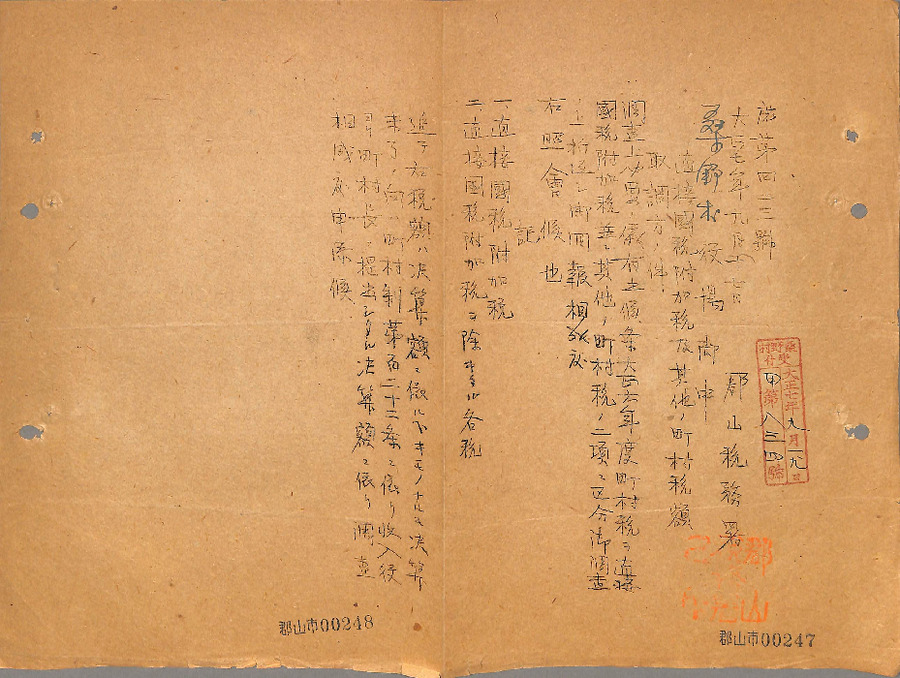 第四三號
大正七年九月十七日
郡山税務署
桑野村役場御中
直接國税附加税及其他ノ町村税額
取調方ノ件
調査上必要ノ儀有之候条大正六年度町村税ヲ直接
國税附加税並ニ其他ノ町村税ノ二項ニ区分御調査
折返シ御回報相成度
右照會候也
記
一、直接國税附加税
二、直接國税附加税ヲ除キタル各税
追テ右税額ハ決算額ニ依ルベキモノナルモ決算
未了ノ向ハ町村制第百二十二条ニ依リ収入役
ヨリ町村長ニ提出シタル決算額ニ依リ調査
相成度申添候
桑野村役
大正七年九月一九日
甲第八三四號
郡山市00248
郡山市00247